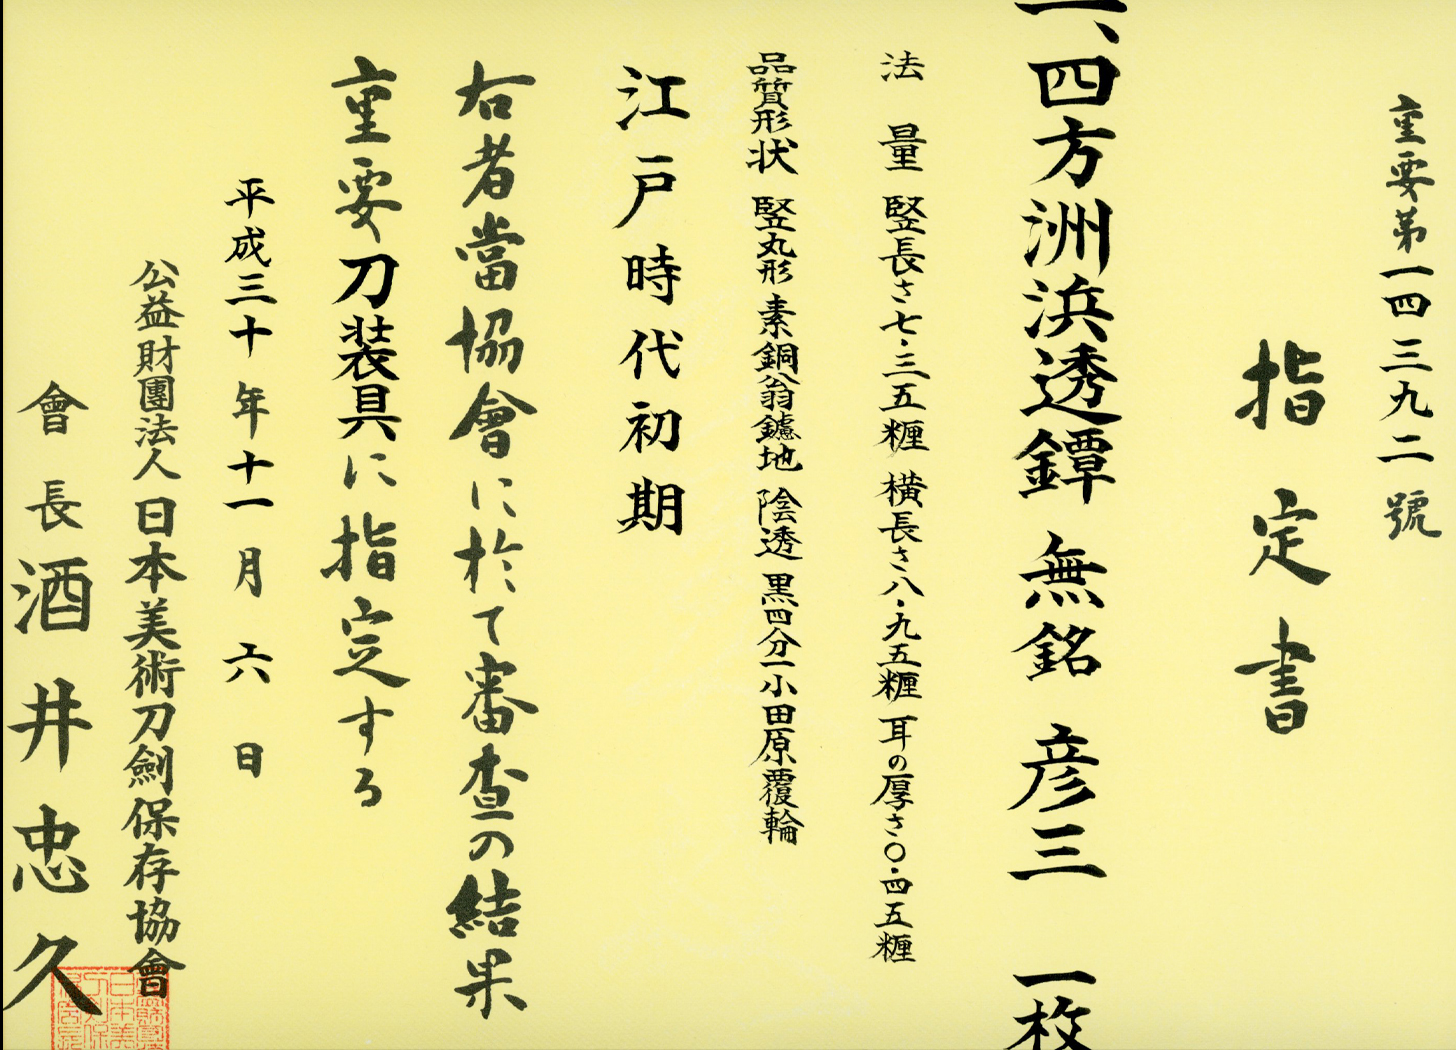 重要第一四三九二號
指定書
一、四方洲浜透鐔 無銘 彦三 一枚
法量 竪長さ七・三五糎 横長さ八・九五糎 耳の厚さ〇・四五糎
品質形状 竪丸形 素銅翁鑢地 陰透 黒四分一小田原覆輪
江戸時代初期
右者當協會に於て審査の結果
重要刀装具に指定する
平成三十年十一月六日
公益財團法人日本美術刀劍保存協會
會長酒井忠久